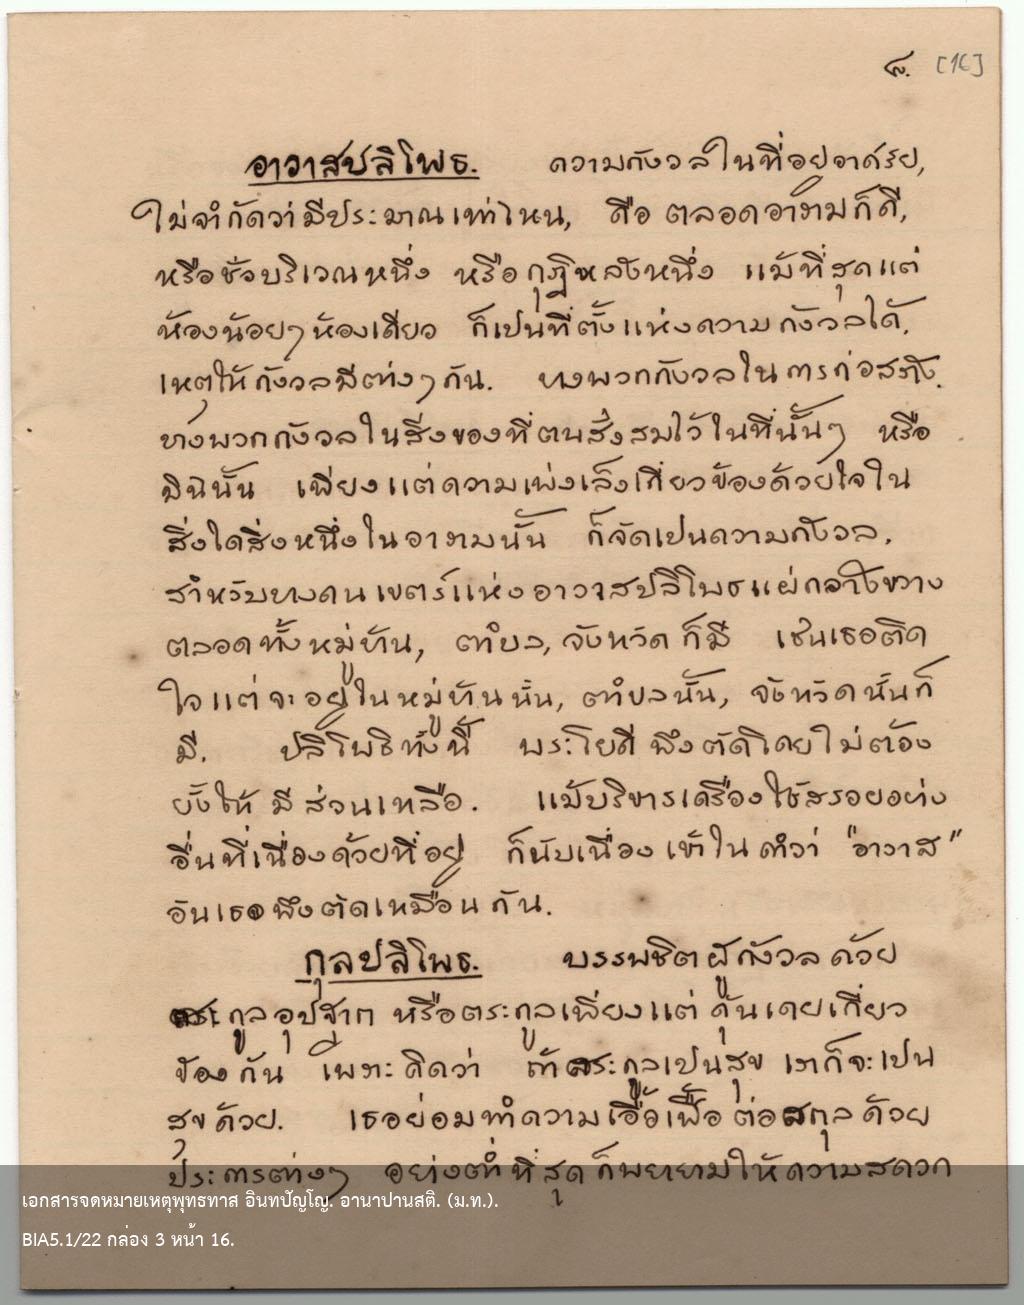 ๘. [16]
อาวาสปลิโพธ. ความกังวลในที่อยู่อาศรัย,
ไม่จำกัดว่ามีประมาณเท่าไหน, คือ ตลอดอารามก็ดี,
หรือชั่วบริเวณหนึ่ง หรือกุฎิหลังหนึ่ง แม้ที่สุดแต่
ห้องน้อยๆห้องเดียว ก็เปนที่ตั้งแห่งความกังวลได้.
เหตุให้กังวลมีต่างๆกัน. บางพวกกังวลในการก่อสร้าง.
บางพวกกังวลในสิ่งของที่ตนสั่งสมไว้ในที่นั้นๆ หรือ
มินินั้น เพียงแต่ความเพ่งเล็งเกี่ยวข้องด้วยใจใน
สิ่งใดสิ่งหนึ่งในอารามนั้น ก็จัดเปนความกังวล.
สำหรับบางคน เขตร์แห่งอาวาสปลิโพธแผ่กว้างขวาง
ตลอดทั้งหมู่บ้าน, ตำบล, จังหวัด ก็มี เช่นเธอติด
ใจแต่จะอยู่ในหมู่บ้านนั้น, ตำบลนั้น, จังหวัดนั้นก็
มี. ปลิโพธิทั้งนี้ พระโยคีพึงตัดโดยไม่ต้อง
ยั้งให้มีส่วนเหลือ. แม้บริขารเครื่องใช้สรอยอย่าง
อื่นที่เนื่องด้วยที่อยู่ ก็นับเนื่องเข้าในคำว่า "อาวาส"
อันเธอพึงตัดเหมือนกัน.
กุลปลิโพธ. บรรพชิตผู้กังวลด้วย
ตระกูลอุปฐาก หรือตระกูลเพียงแต่คุ้นเคยเกี่ยว
ข้องกัน เพราะคิดว่า ถ้าตระกูลเปนสุข เราก็จะเปน
สุขด้วย. เธอย่อมทำความเอื้อเฟื้อต่อสกุลด้วย
ประการต่างๆ อย่างต่ำที่สุดก็พยายามให้ความสดวก
เอกสารจดหมายเหตุพุทธทาส อินทปัญโญ. อานาปานสติ. (ม.ท.).
BIA5.1/22 กล่อง 3 หน้า 16.